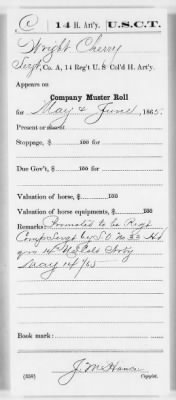 C 14 H. Art'y. U.S.C.T.
Wright Cherry
Sergt, Co. A, 14 Reg't U S Col'd H. Art'y.
Appears on
Company Muster Roll
for May & June, 1865.
Present or absent
Stoppage, $ 100 for
Due Gov't, $ 100 for
Valuation of horse, $ 100
Valuation of horse equipments, $ 100
Remarks: Promoted to be Regt
Comsy Sergt by S.O. No 33 Hd
qrs 14 US Cold Arty
May 14/65
Book mark:
(358) Copyist.